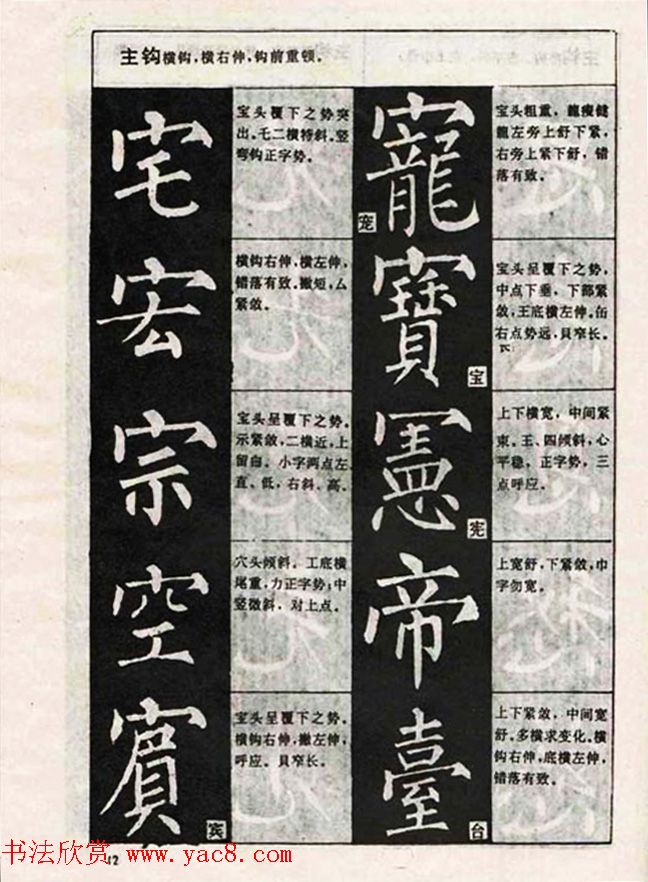 主钩横钩，横右伸，钩前重顿。
宅
宝头覆下之势突
出。乇二横特斜。竖
弯钩正字势。
宏
横钩右伸，横左伸，
错落有致。撇短，厶
紧敛。
宗
宝头呈覆下之势。
示紧敛，二横近，上
留白。小字两点左
直、低，右斜、高。
空
穴头倾斜。工底横
尾重，力正字势；中
竖微斜，对上点。
賓
宾
宝头呈覆下之势。
横钩右伸，撇左伸，
呼应。貝窄长。
寵
宠
宝头粗重，龍瘦健
龍左旁上舒下紧，
右旁上紧下舒，错
落有致。
寶
宝
宝头呈覆下之势，
中点下垂，下部紧
敛，王底横左伸。缶
右点势远，貝窄长。
憲
宪
上下横宽，中间紧
束。王、四倾斜，心
平稳，正字势，三
点呼应。
帝
上宽舒，下紧敛，巾
字勿宽。
臺
台
上下紧敛，中间宽
舒。多横求变化。横
钩右伸，底横左伸，
错落有致。
书法欣赏 www.yac8.com
12